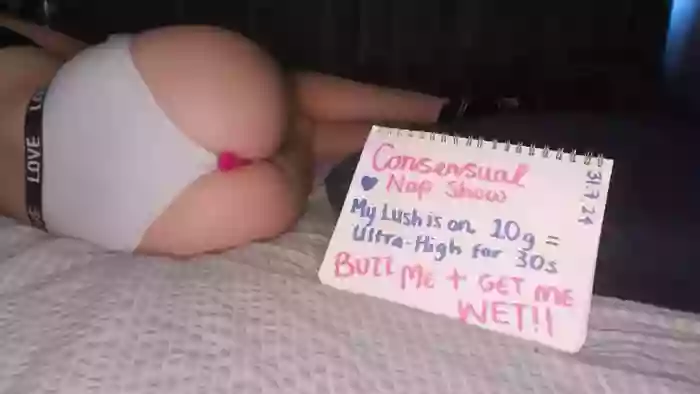 LOVE
LO
Consensual
♥ Nap Show
31.7.24
My Lush is on 10g =
Ultra-High for 30s
BUZZ ME + GET ME
WET!!